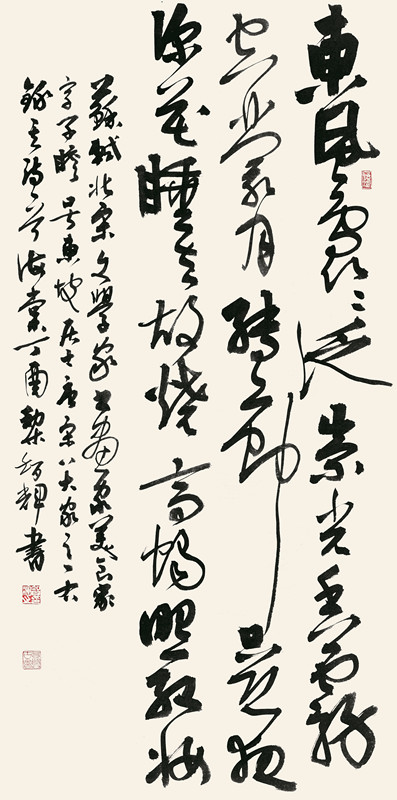 東風裊〻泛崇光香雾
空濛月轉廊只恐夜
深花睡去故燒高燭照紅妝
蘇軾北宋文學家書畫家美食家
字子瞻号東坡居士唐宋八大家之一右
錄其詩一首海棠丁酉黎智輝書